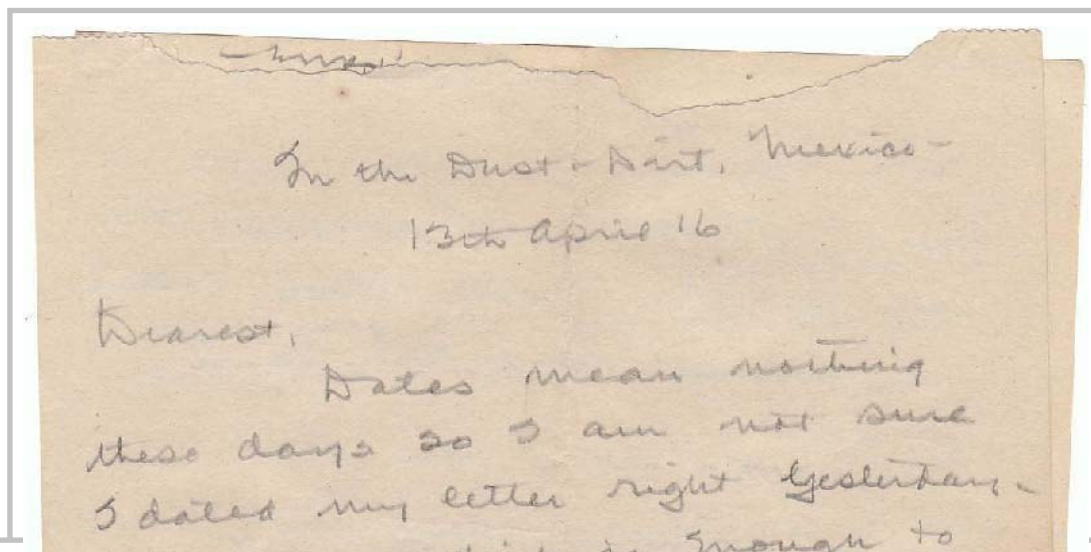 In the Dust & Dirt, Mexico –
13th April 16
Dearest,
Dates mean nothing
these days so I am not sure
I dated my letter right yesterday –
enough to